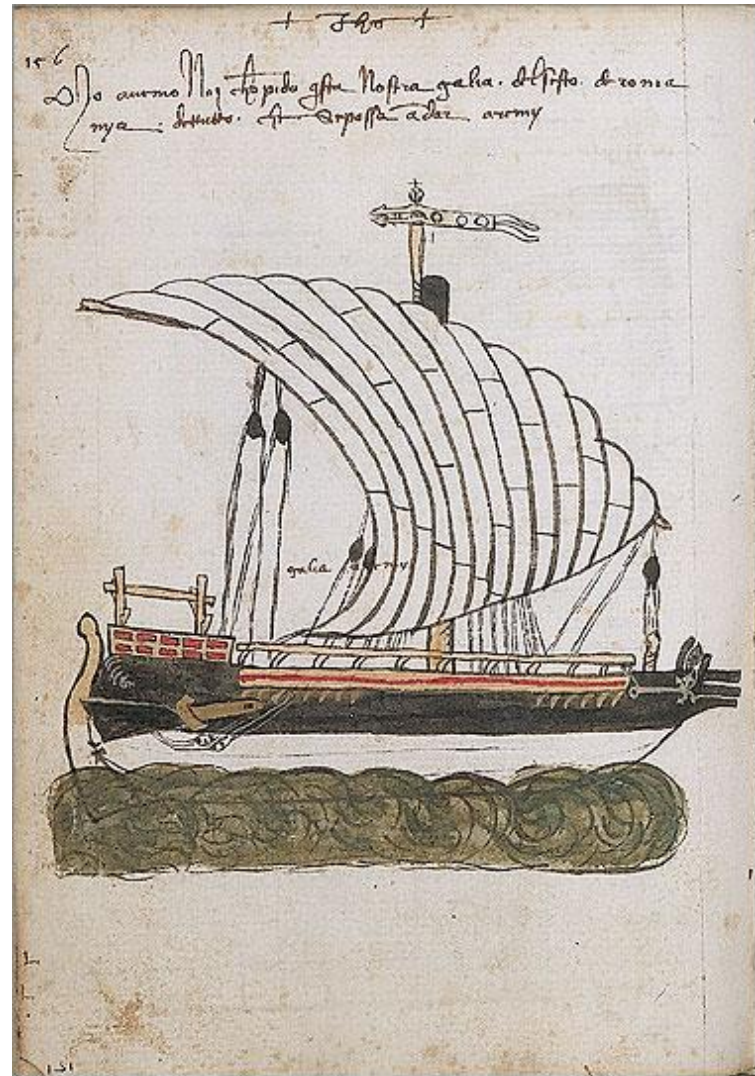 + Jhs +
156
Mo avemo Noy chopido qsta Nostra galia . del sesto . de roma
nya . detutto . che Sepossa adar aremy
galia
151